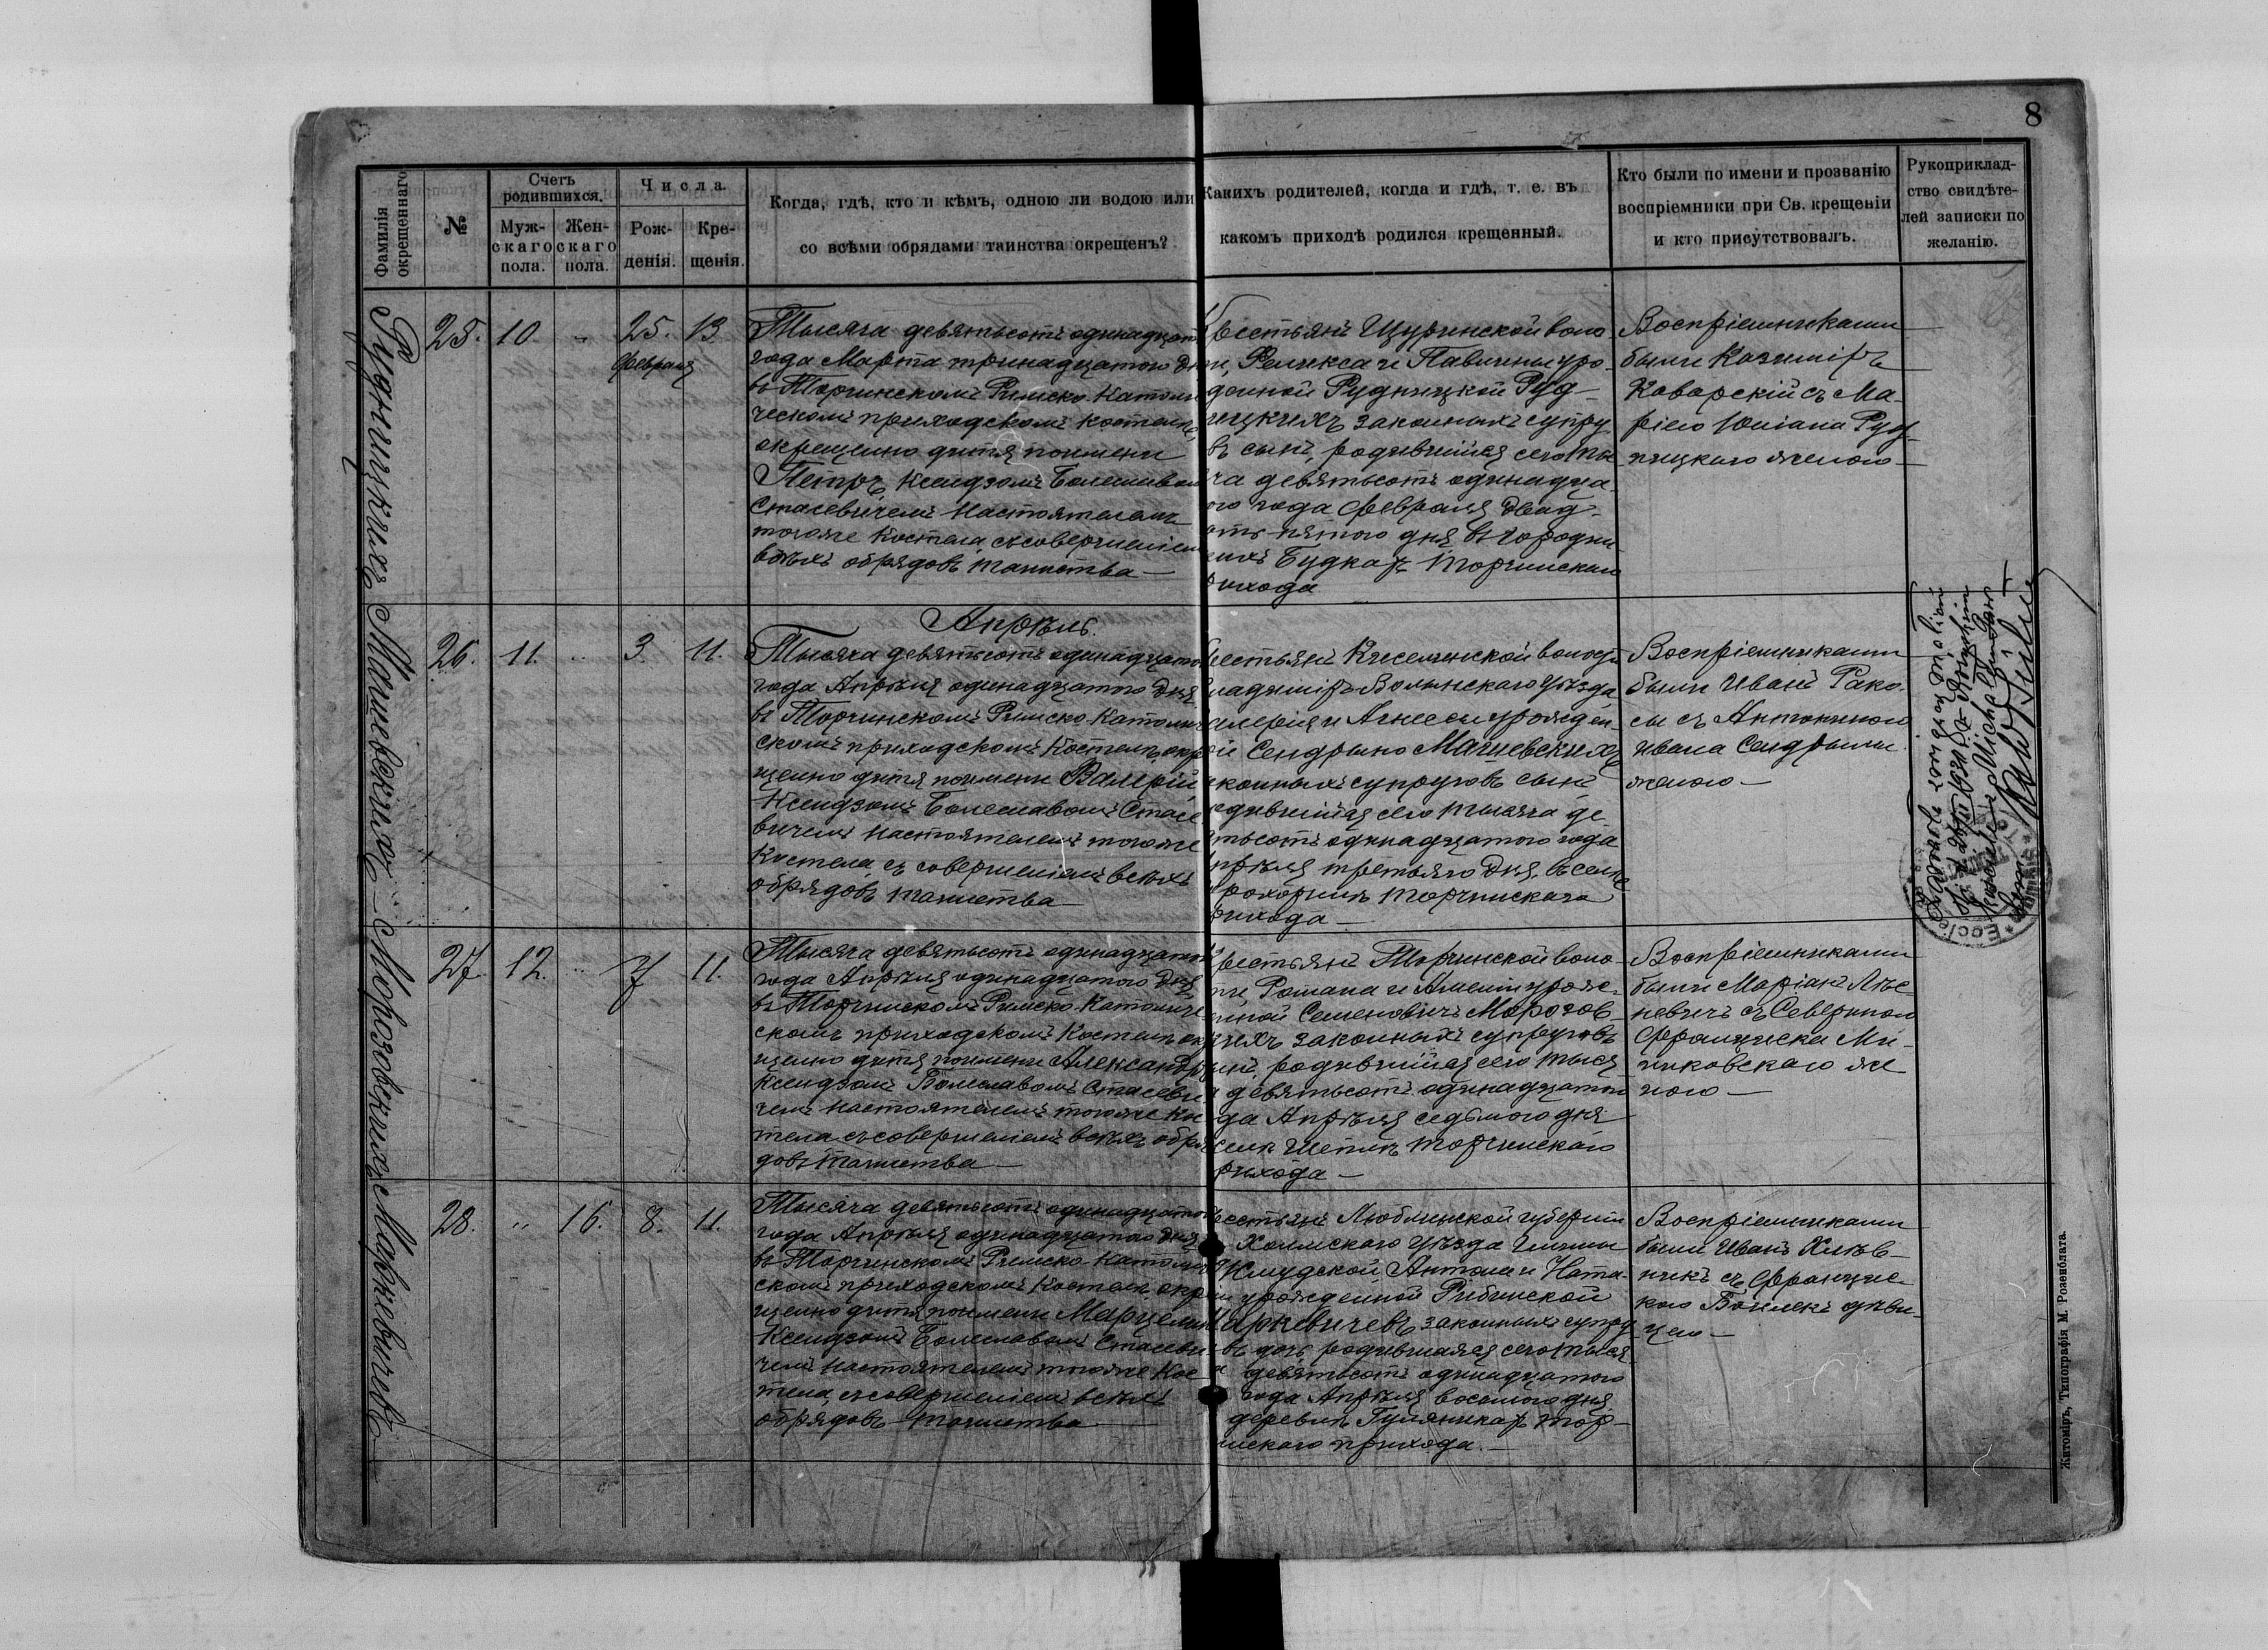 8
Фамилія окрещеннаго
№
Счетъ родившихся.
Муж-
скаго
пола.
Жен-
скаго
пола.
Числа.
Рож-
денія.
Кре-
щенія.
Когда, гдѣ, кто и кѣмъ, одною ли водою или
со всѣми обрядами таинства окрещенъ?
Какихъ родителей, когда и гдѣ, т. е. въ
какомъ приходѣ родился крещенный.
Кто были по имени и прозванію
воспріемники при Св. крещеніи
и кто присутствовалъ.
Рукоприклад-
ство свидѣте-
лей записки по
желанію.
Рудницкихъ
25.
10
"
25.
Февраля
13
Тысяча девятьсотъ одинадцат
года Марта тринадцатого дн
въ Торчинскомъ Римско-Католи
ческомъ приходскомъ костелѣ,
окрещено дитя поимени
Петръ ксендзомъ Болеславом
Стасевичемъ Настоятелемъ
тогоже Костела, съ совершеніем
всѣхъ обрядовъ таинства
Крестьянъ Щуринской воло
ти, Феликса и Павлины уро-
денной Рудницкой Руд-
ницкихъ законныхъ супру
въ сынъ, родившійся сего ты
ча девятьсотъ одинадца-
ого года Февраля двад-
ать пятого дня въ городни
Будкахъ Торчинскаго
рихода
Воспріемниками
были Казиміръ
Каварскій съ Ма-
ріею Юліана Руд-
ницкаго женою
Апрѣль.
Мачевскихъ
26.
11.
"
3.
11.
Тысяча девятьсотъ одинадцато
года Апрѣля одинадцатого дня
въ Торчинскомъ Римско-Католич
скомъ приходскомъ Костелѣ, окр
щено дитя поимени Валерій,
Ксендзомъ Болеславомъ Стасе
вичемъ настоятелемъ тогоже
Костела, съ совершеніемъ всѣхъ
обрядовъ таинства
рестьянъ Киселинской волости
ладиміръ-Волынскаго уѣзда
алерія и Агнесы урожден-
ой Сендрыко Мачевскихъ
конныхъ супруговъ сынъ
одившійся сего тысяча де
ятьсотъ одинадцатого года
прѣля третьяго дня, въ селѣ
Торчинскаго
рихода
Воспріемниками
были Иванъ Рако-
съ Антониною
Ивана
женою
Морозовскихъ
27
12.
"
7
11.
Тысяча девятьсотъ одинадцатого
года Апрѣля одинадцатого дня
въ Торчинскомъ Римско-Католиче
скомъ приходскомъ Костелѣ ок
щено дитя поимени Александръ
Ксендзомъ Болеславомъ Стасеви
чемъ настоятелемъ тогоже Ко
тела, съ совершеніемъ всѣхъ обря
довъ таинства
рестьянъ Торчинской воло-
ти, Романа и Амеліи урож-
нной Семеновичъ Морозов-
кихъ законныхъ супруговъ
нъ, родившійся сего тыся
девятьсотъ одинадцатого
да Апрѣля седьмого дня
селѣ Шеплѣ Торчинскаго
рихода
Воспріемниками
были Маріанъ Лѣс-
невичъ съ Севериною
Франциска Ми-
чковскаго же
ною
Маркевичевъ
28.
"
16.
8.
11.
Тысяча девятьсотъ одинадцатого
года Апрѣля одинадцатого дня
въ Торчинскомъ Римско-Католиче
скомъ приходскомъ Костелѣ окре
щено дитя поимени Марцелин
Ксендзомъ Болеславомъ Стасеви-
чемъ настоятелемъ тогоже Кос
тела, съ совершеніемъ всѣхъ
обрядовъ таинства
рестьянъ Люблинской губерніи
Холмскаго уѣзда Гмины
Жмудской, Антона и Ната-
урожденной Рибинской
аркевичевъ законныхъ супру
въ дочь, родившаяся сего тыся
девятьсотъ одинадцатого
года Апрѣля восьмого дня
деревнѣ Гуляникахъ Тор-
инскаго прихода.
Воспріемниками
были Иванъ Хлѣв-
никъ съ Францис-
кою дѣви
цею
Житоміръ, Типографія М. Розенблата.